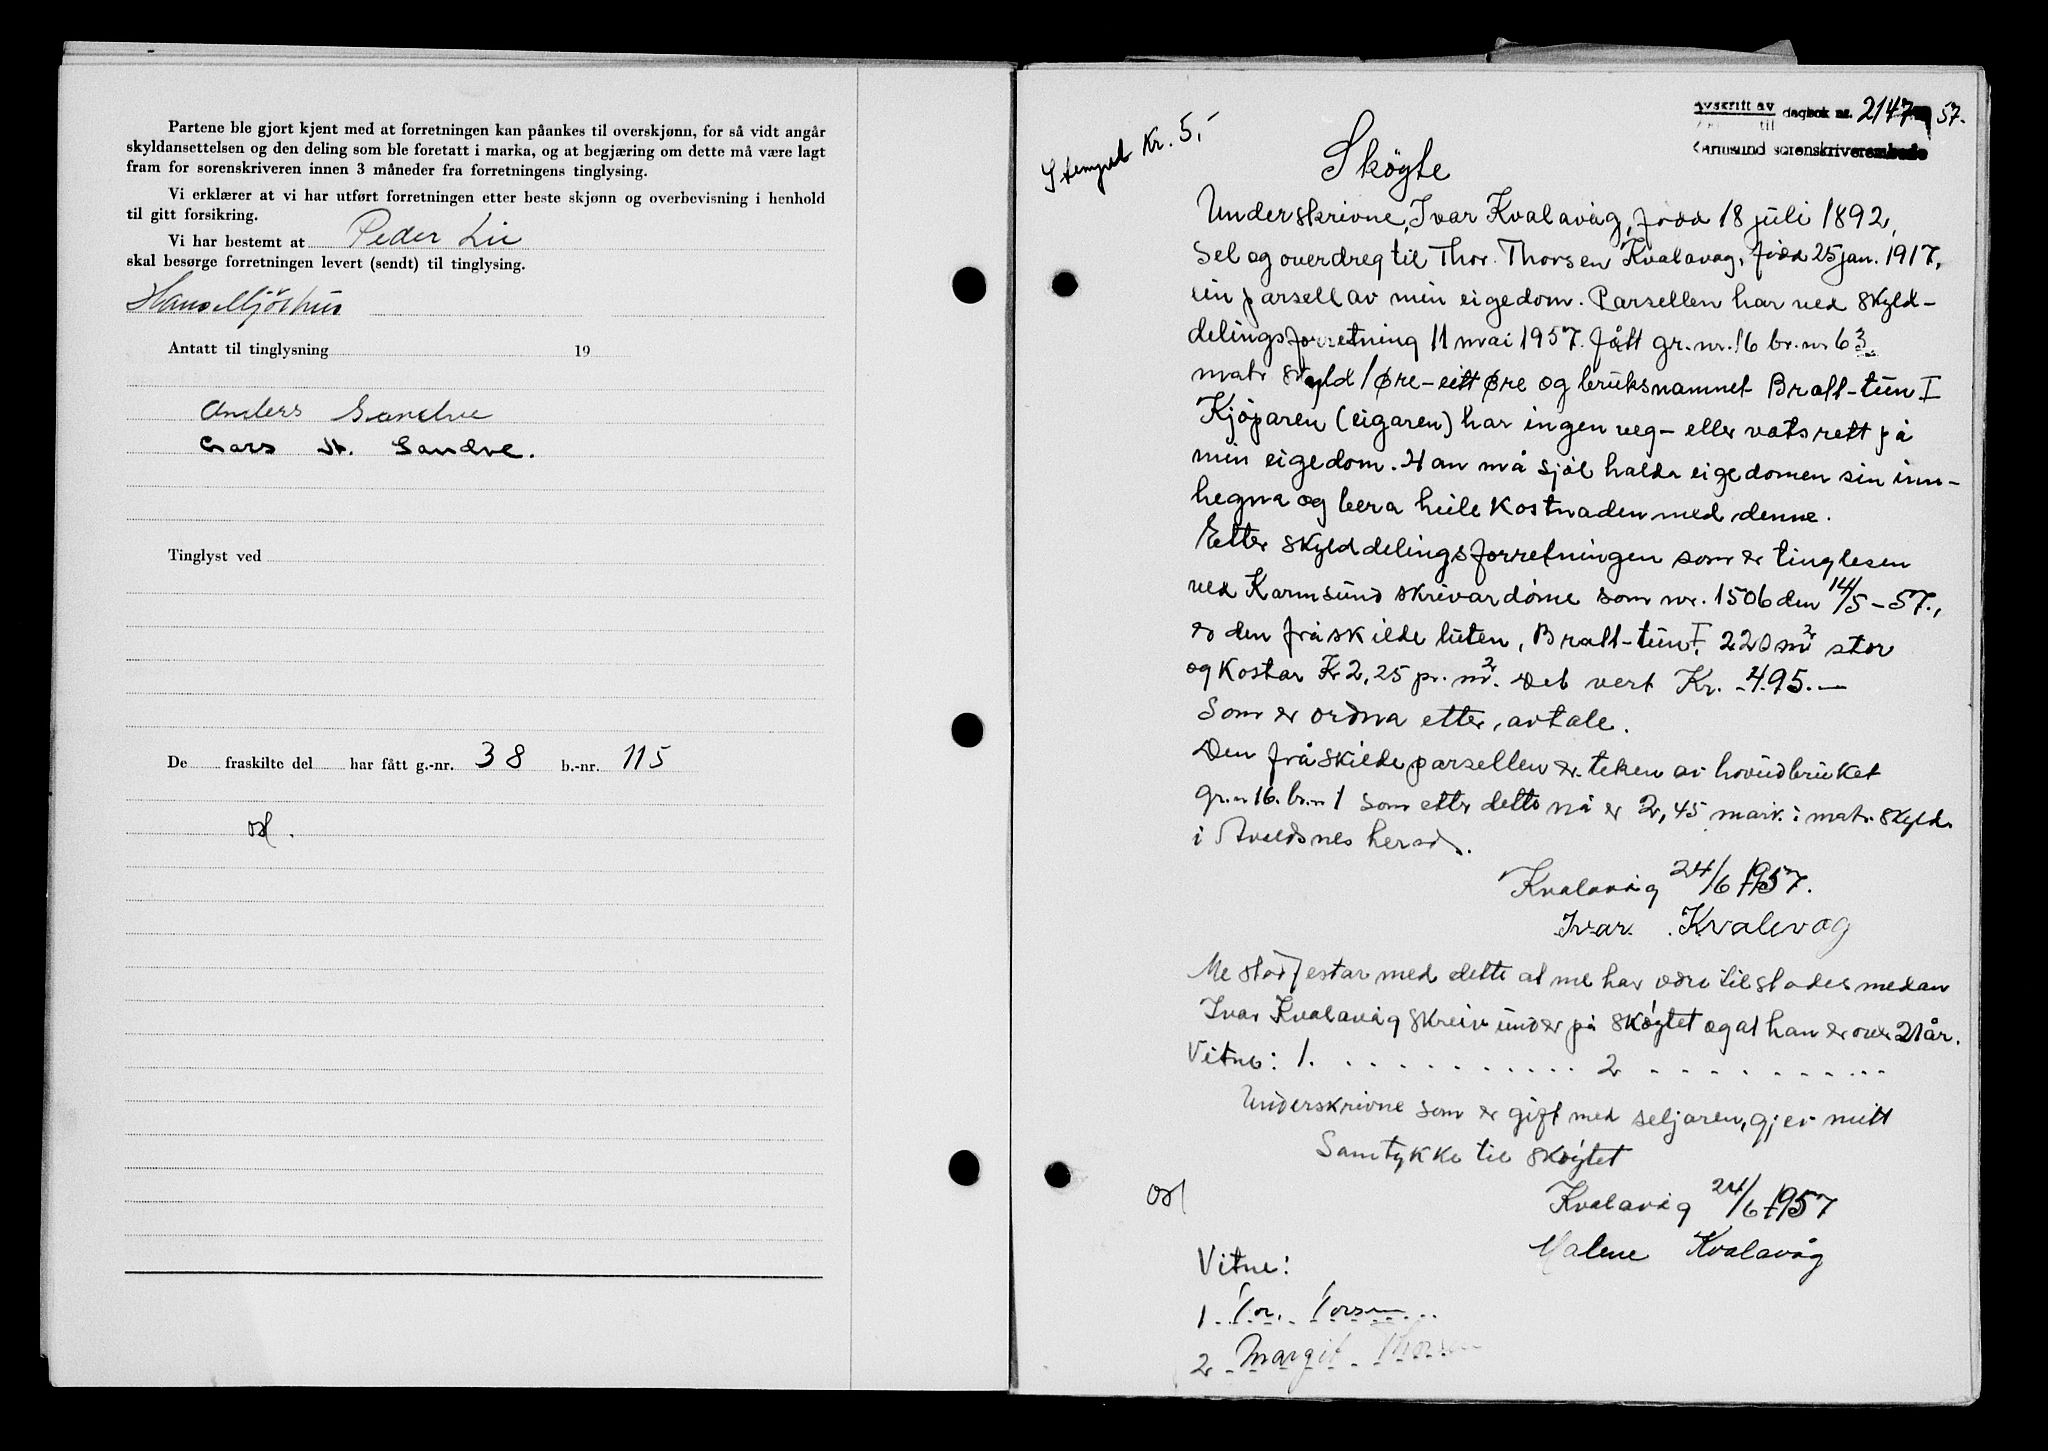 Partene ble gjort kjent med at forretningen kan påankes til overskjønn, for så vidt angår
skyldansettelsen og den deling som ble foretatt i marka, og at begjæring om dette må være lagt
fram for sorenskriveren innen 3 måneder fra forretningens tinglysing.
Vi erklærer at vi har utført forretningen etter beste skjønn og overbevisning i henhold
til gitt forsikring.
Vi har bestemt at Peder Lie
skal besørge forretningen levert (sendt) til tinglysing.
Hans Mjøshus
Antatt til tinglysning 19
Anders Sandve
Lars St. Sandve.
Tinglyst ved
De fraskilte del har fått g.-nr. 38 b.-nr. 115
Avskrift av dagbok nr. 2147 57.
til
Karmsund sorenskriverembede
Stempel Kr. 5,-
Skøyte
Underskrivne, Ivar Kvalavåg, fødd 18 juli 1892,
Sel og overdreg til Thor Thorsen Kvalavåg, fødd 25 jan. 1917,
ein parsell av min eigedom. Parsellen har ved skyld-
delingsforretning 11 mai 1957. fått gr. nr. 16 br. nr 63
matr skyld 1 øre - eitt øre og bruksnamnet Bratt-tun I
Kjøparen (eigaren) har ingen veg- eller vatsrett på
min eigedom. Han må sjøl halda eigedomen sin inn-
hegna og bera heile kostnaden med denne.
Etter skylddelingsforretningen som er tinglesen
ved Karmsund skrivardøme som nr. 1506 den 14/5-57.,
er den fråskilde luten, Bratt-tun I, 220 m² stor
og kostar Kr 2,25 pr. m². Det vert Kr. 495.-
Som er ordna etter avtale.
Den fråskilde parsellen er teken av hovudbruket
gr. n 16. br. n 1 som etter dette nå er 2,45 mark i matr. skyld.
i Avaldsnes herad.
Kvalavåg 24/6 1957.
Ivar Kvalevåg
Me stadfestar med dette at me har vore tilstades medan
Ivar Kvalavåg skreiv under på skøytet og at han er over 21 år.
Vitne: 1. . . . . . . . . . . . 2 . . . . . . . . . . .
Underskrivne som er gift med seljaren, gjev mitt
Samtykke til skøytet
Kvalavåg 24/6 1957
Malene Kvalavåg
Vitne:
1 Tor. Torsen
2 Margit Thorsen